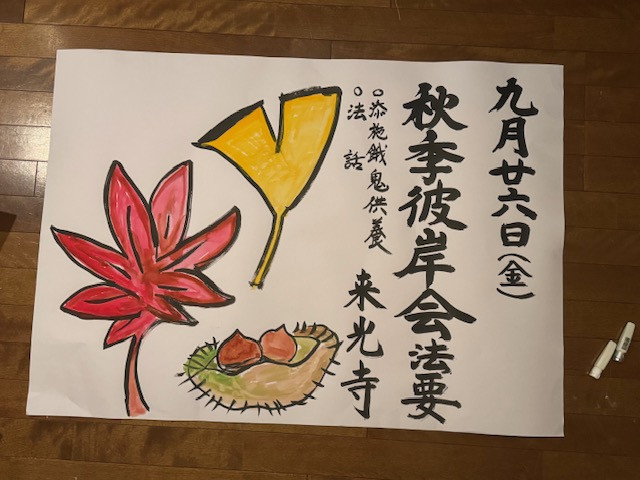 九月廿六日(金)
秋季彼岸会法要
○添施餓鬼供養
○法話
来光寺